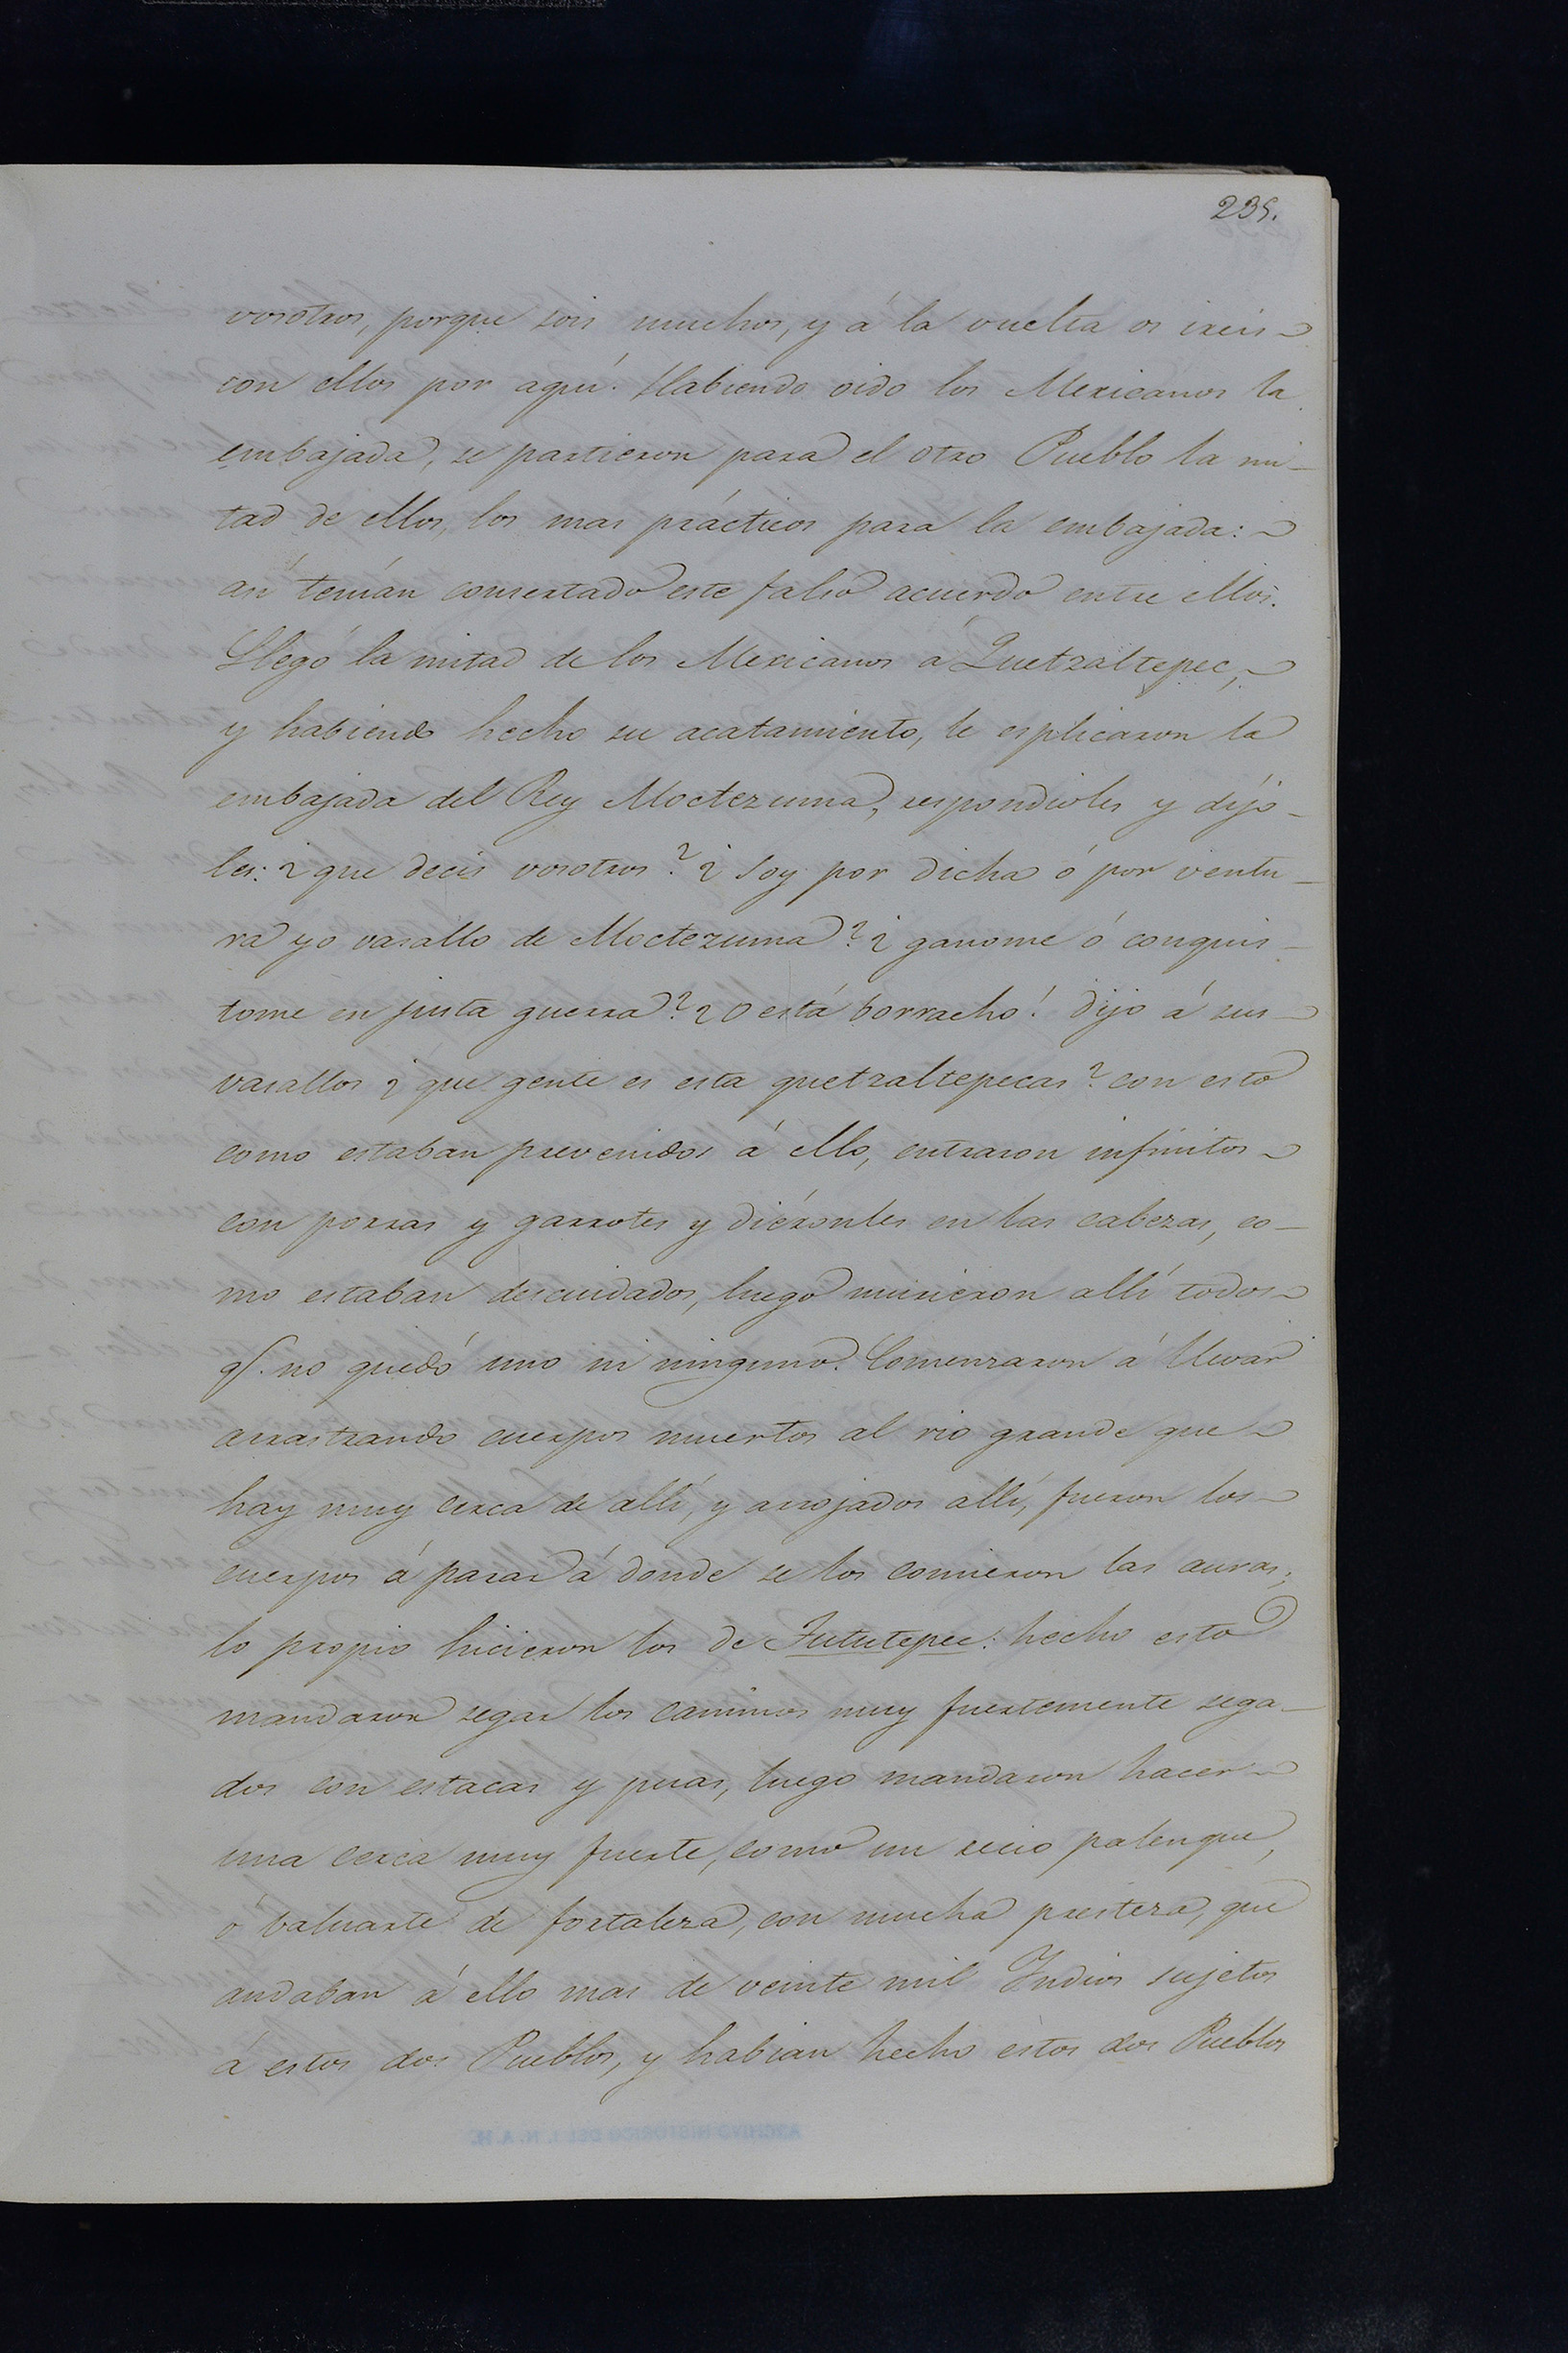 239.
vosotros, porque sois muchos, y á la vuelta os ireis
con ellos por aqui. Habiendo oido los Mexicanos la
embajada, se partieron para el otro Pueblo la mi-
tad de ellos, los mas prácticos para la embajada:
asi tenian consertado este falso acuerdo entre ellos.
Llegó la mitad de los Mexicanos á Quetzaltepec,
y habiendo hecho su acatamiento, le esplicaron la
embajada del Rey Moctezuma, respondioles y dijo-
les: ¿que decis vosotros? ¿Soy por dicha ó por ventu-
ra yo vasallo de Moctezuma? ¿ganome ó conquis-
tome en justa guerra? ¿O está borracho! dijo á sus
vasallos ¿que gente es esta quetzaltepecas? con esto
como estaban prevenidos á ello, entraron infinitos
con porras y garrotes y diéronles en las cabezas, co-
mo estaban descuidados, luego murieron allí todos
q. no quedó uno ni ninguno. Comenzaron á llevar
arrastrando cuerpos muertos al rio grande que
hay muy cerca de allí, y arrojados allí, fueron los
cuerpos á parar á donde se los comieron las auras;
lo propio hicieron los de Tututepec: hecho esto
mandaron segar los caminos muy fuertemente sega-
dos con estacas y puas, luego mandaron hacer
una cerca muy fuerte, como un recio palenque,
ó baluarte de fortaleza, con mucha presteza, que
andaban á ello mas de veinte mil Indios sujetos
á estos dos Pueblos, y habian hecho estos dos Pueblos
ARCHIVO HISTORICO DEL I. N. A. H.